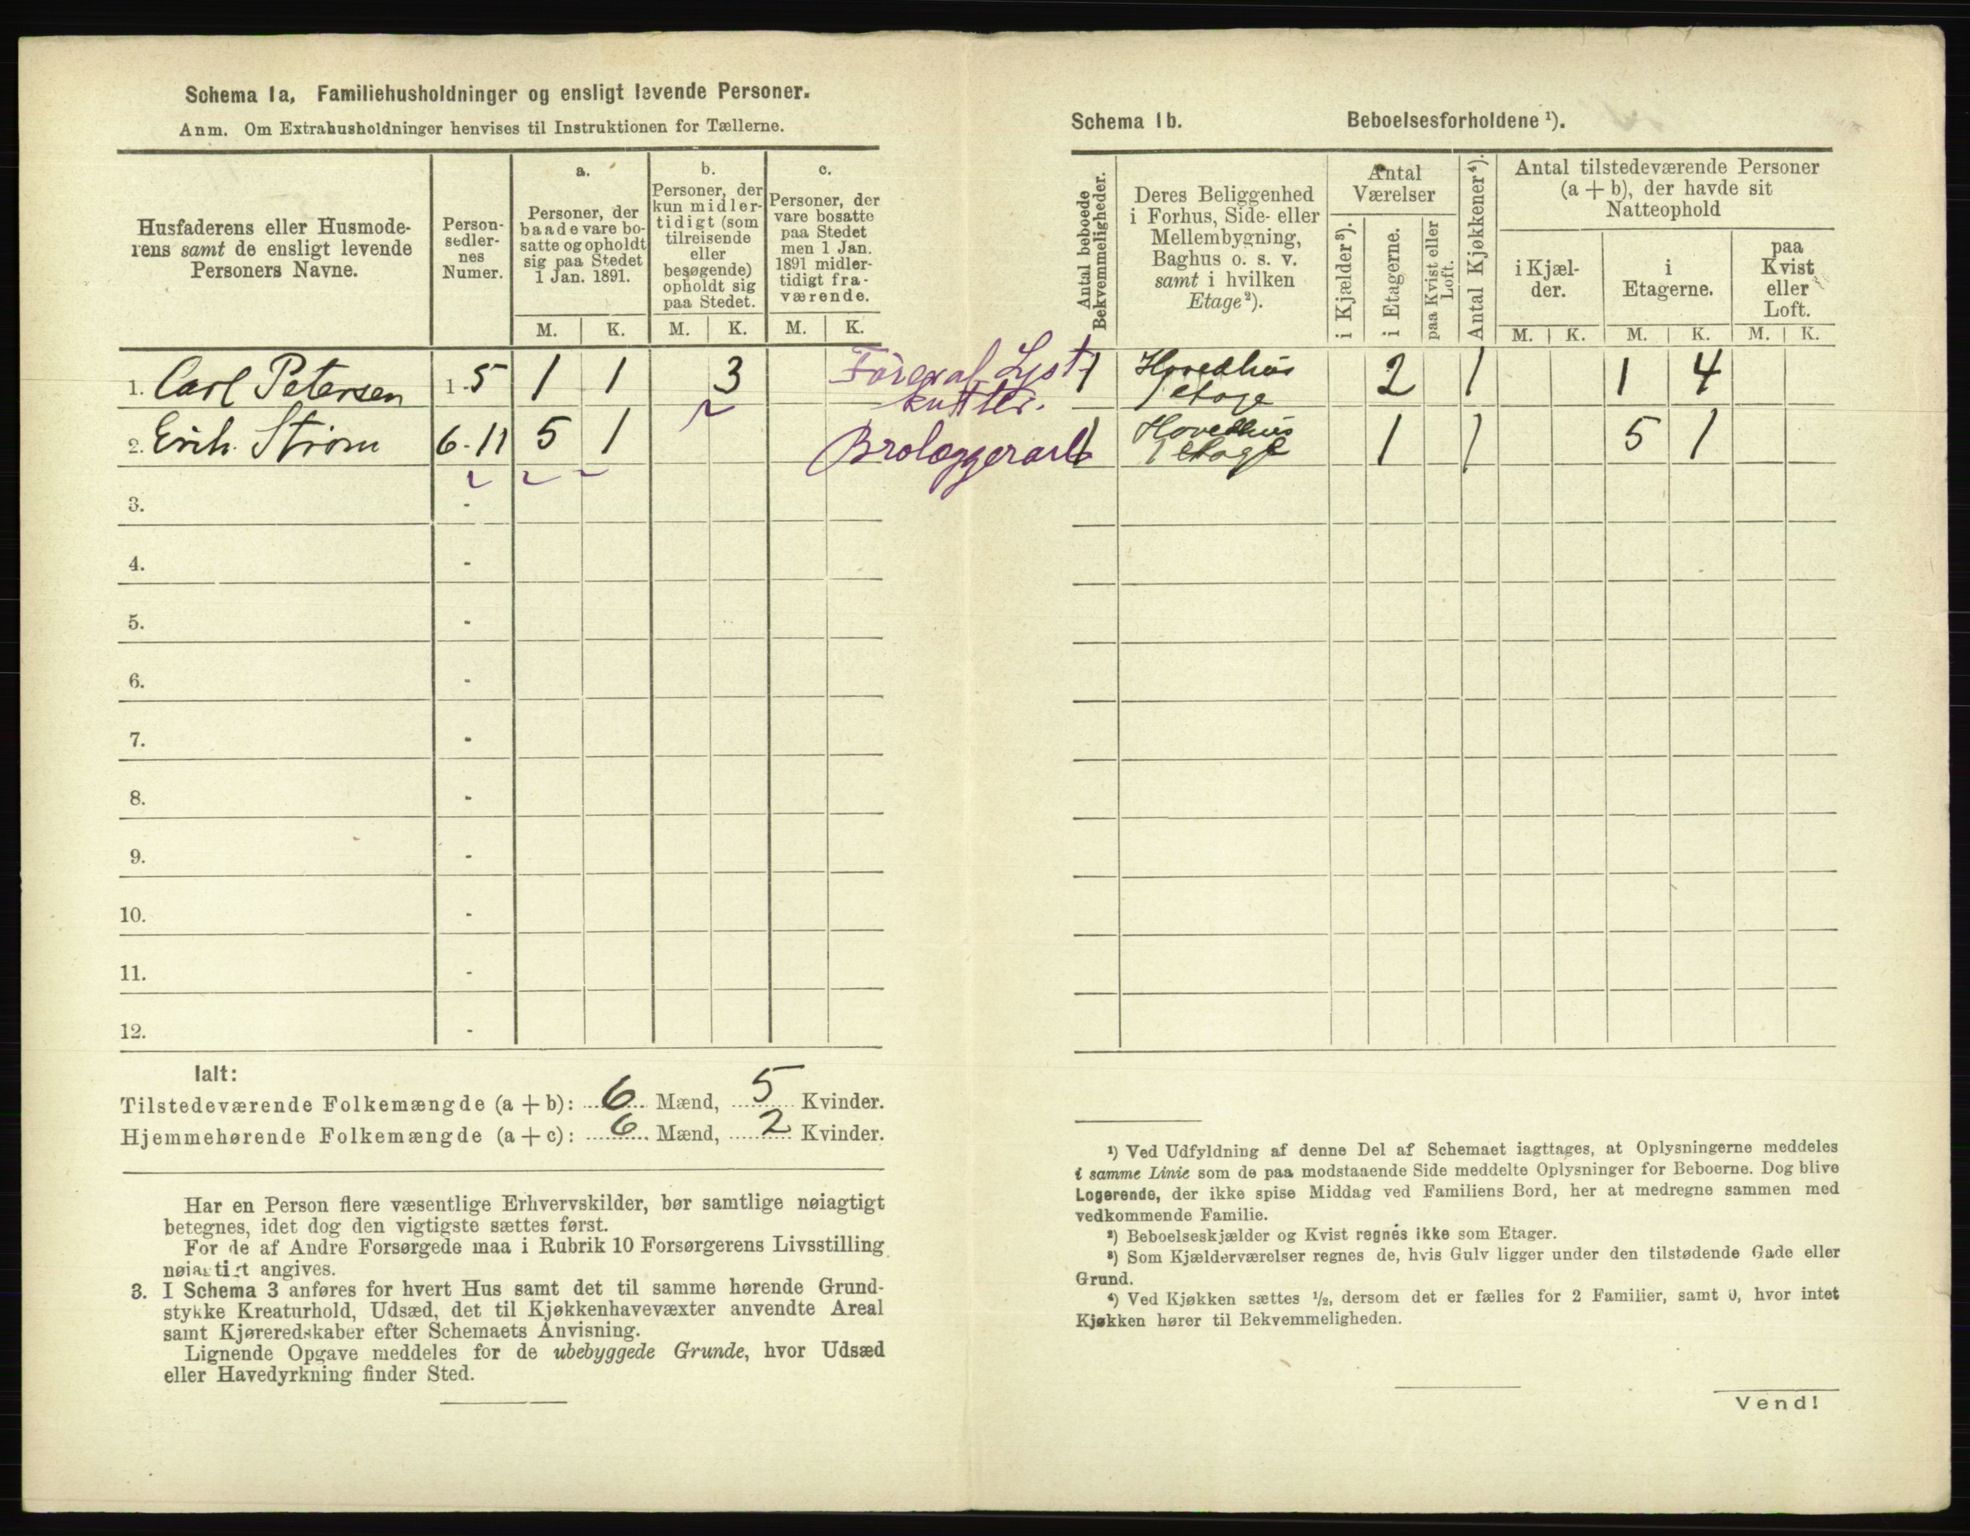 Schema 1a, Familiehusholdninger og ensligt levende Personer.
Anm. Om Extrahusholdninger henvises til Instruktionen for Tællerne.
Husfaderens eller Husmode-
rens samt de ensligt levende
Personers Navne.
Person-
sedler-
nes
Numer.
a.
Personer, der
baade vare bo-
satte og opholdt
sig paa Stedet
1 Jan. 1891.
b.
Personer, der
kun midler-
tidigt (som
tilreisende
eller
besøgende)
opholdt sig
paa Stedet.
c.
Personer, der
vare bosatte
paa Stedet
men 1 Jan.
1891 midler-
tidigt fra-
værende.
M. K. M. K. M. K.
1. Carl Petersen 1-5 1 1 3 Fører af Lyst-
kutter.
2. Erik Strøm 6-11 5 1 Brolæggerarb
3. -
4. -
5. -
6. -
7. -
8. -
9. -
10. -
11. -
12. -
Ialt:
Tilstedeværende Folkemængde (a + b): 6 Mænd, 5 Kvinder.
Hjemmehørende Folkemængde (a + c): 6 Mænd, 2 Kvinder.
Har en Person flere væsentlige Erhvervskilder, bør samtlige nøiagtigt
betegnes, idet dog den vigtigste sættes først.
For de af Andre Forsørgede maa i Rubrik 10 Forsørgerens Livsstilling
nøiagtigt angives.
3. I Schema 3 anføres for hvert Hus samt det til samme hørende Grund-
stykke Kreaturhold, Udsæd, det til Kjøkkenhavevæxter anvendte Areal
samt Kjøreredskaber efter Schemaets Anvisning.
Lignende Opgave meddeles for de ubebyggede Grunde, hvor Udsæd
eller Havedyrkning finder Sted.
Schema 1b. Beboelsesforholdene ¹).
Antal beboede
Bekvemmeligheder.
Deres Beliggenhed
i Forhus, Side- eller
Mellembygning,
Baghus o. s. v.
samt i hvilken
Etage²).
Antal
Værelser
i Kjælder³).
i Etagerne.
paa Kvist eller
Loft.
Antal Kjøkkener⁴).
Antal tilstedeværende Personer
(a + b), der havde sit
Natteophold
i Kjæl-
der.
i
Etagerne.
paa
Kvist
eller
Loft.
M. K. M. K. M. K.
1 Hovedhus
1 etage 2 1 1 4
1 Hovedhus
1 etage 1 1 5 1
¹) Ved Udfyldning af denne Del af Schemaet iagttages, at Oplysningerne meddeles
i samme Linie som de paa modstaaende Side meddelte Oplysninger for Beboerne. Dog blive
Logerende, der ikke spise Middag ved Familiens Bord, her at medregne sammen med
vedkommende Familie.
²) Beboelseskjælder og Kvist regnes ikke som Etager.
³) Som Kjælderværelser regnes de, hvis Gulv ligger under den tilstødende Gade eller
Grund.
⁴) Ved Kjøkken sættes ¹/₂, dersom det er fælles for 2 Familier, samt 0, hvor intet
Kjøkken hører til Bekvemmeligheden.
Vend!